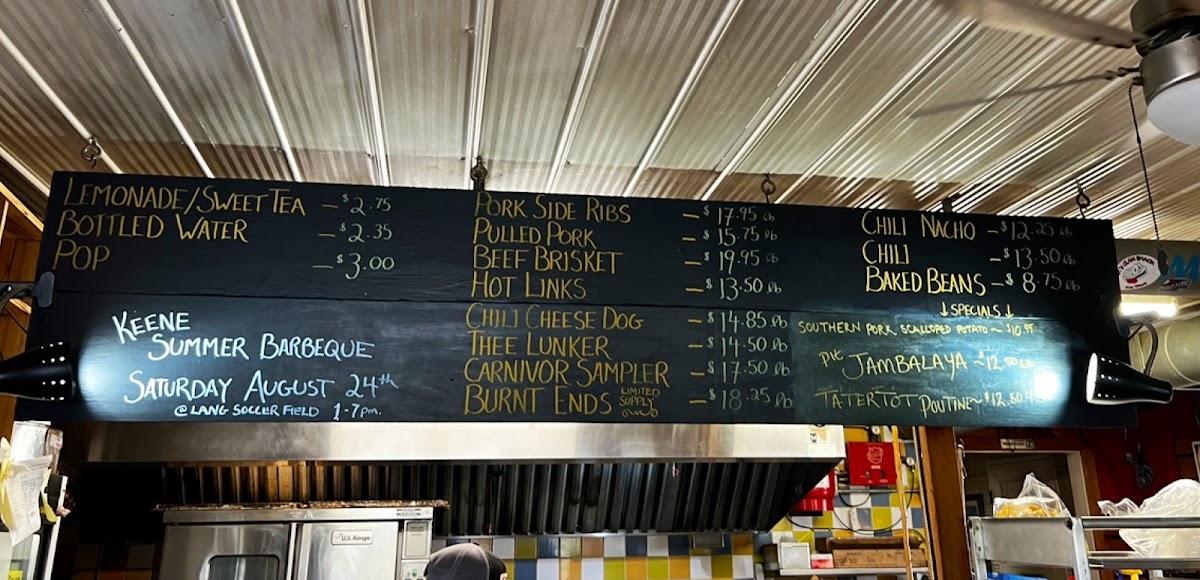 LEMONADE/SWEET TEA - $2.75
BOTTLED WATER - $2.35
POP - $3.00
KEENE
SUMMER BARBEQUE
SATURDAY AUGUST 24th
@ LANG SOCCER FIELD 1-7pm.
PORK SIDE RIBS - $17.95 lb
PULLED PORK - $15.75 lb
BEEF BRISKET - $19.95 lb
HOT LINKS - $13.50 lb
CHILI CHEESE DOG - $14.85 lb
THEE LUNKER - $14.50 lb
CARNIVOR SAMPLER - $17.50 lb
BURNT ENDS LIMITED SUPPLY - $18.25 lb
CHILI NACHO - $12.25 lb
CHILI - $13.50 lb
BAKED BEANS - $8.75 lb
↓ SPECIALS ↓
SOUTHERN PORK SCALLOPED POTATO ~ $10.95
JAMBALAYA ~ $12.50 LB
TATER TOT POUTINE ~ $12.80
U.S. Range